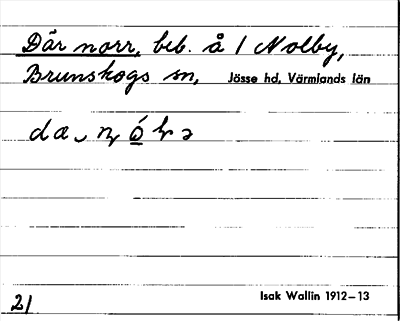 Där norr, beb. å 1 Nolby,
Brunskogs sn, Jösse hd, Värmlands län
21 Isak Wallin 1912–13